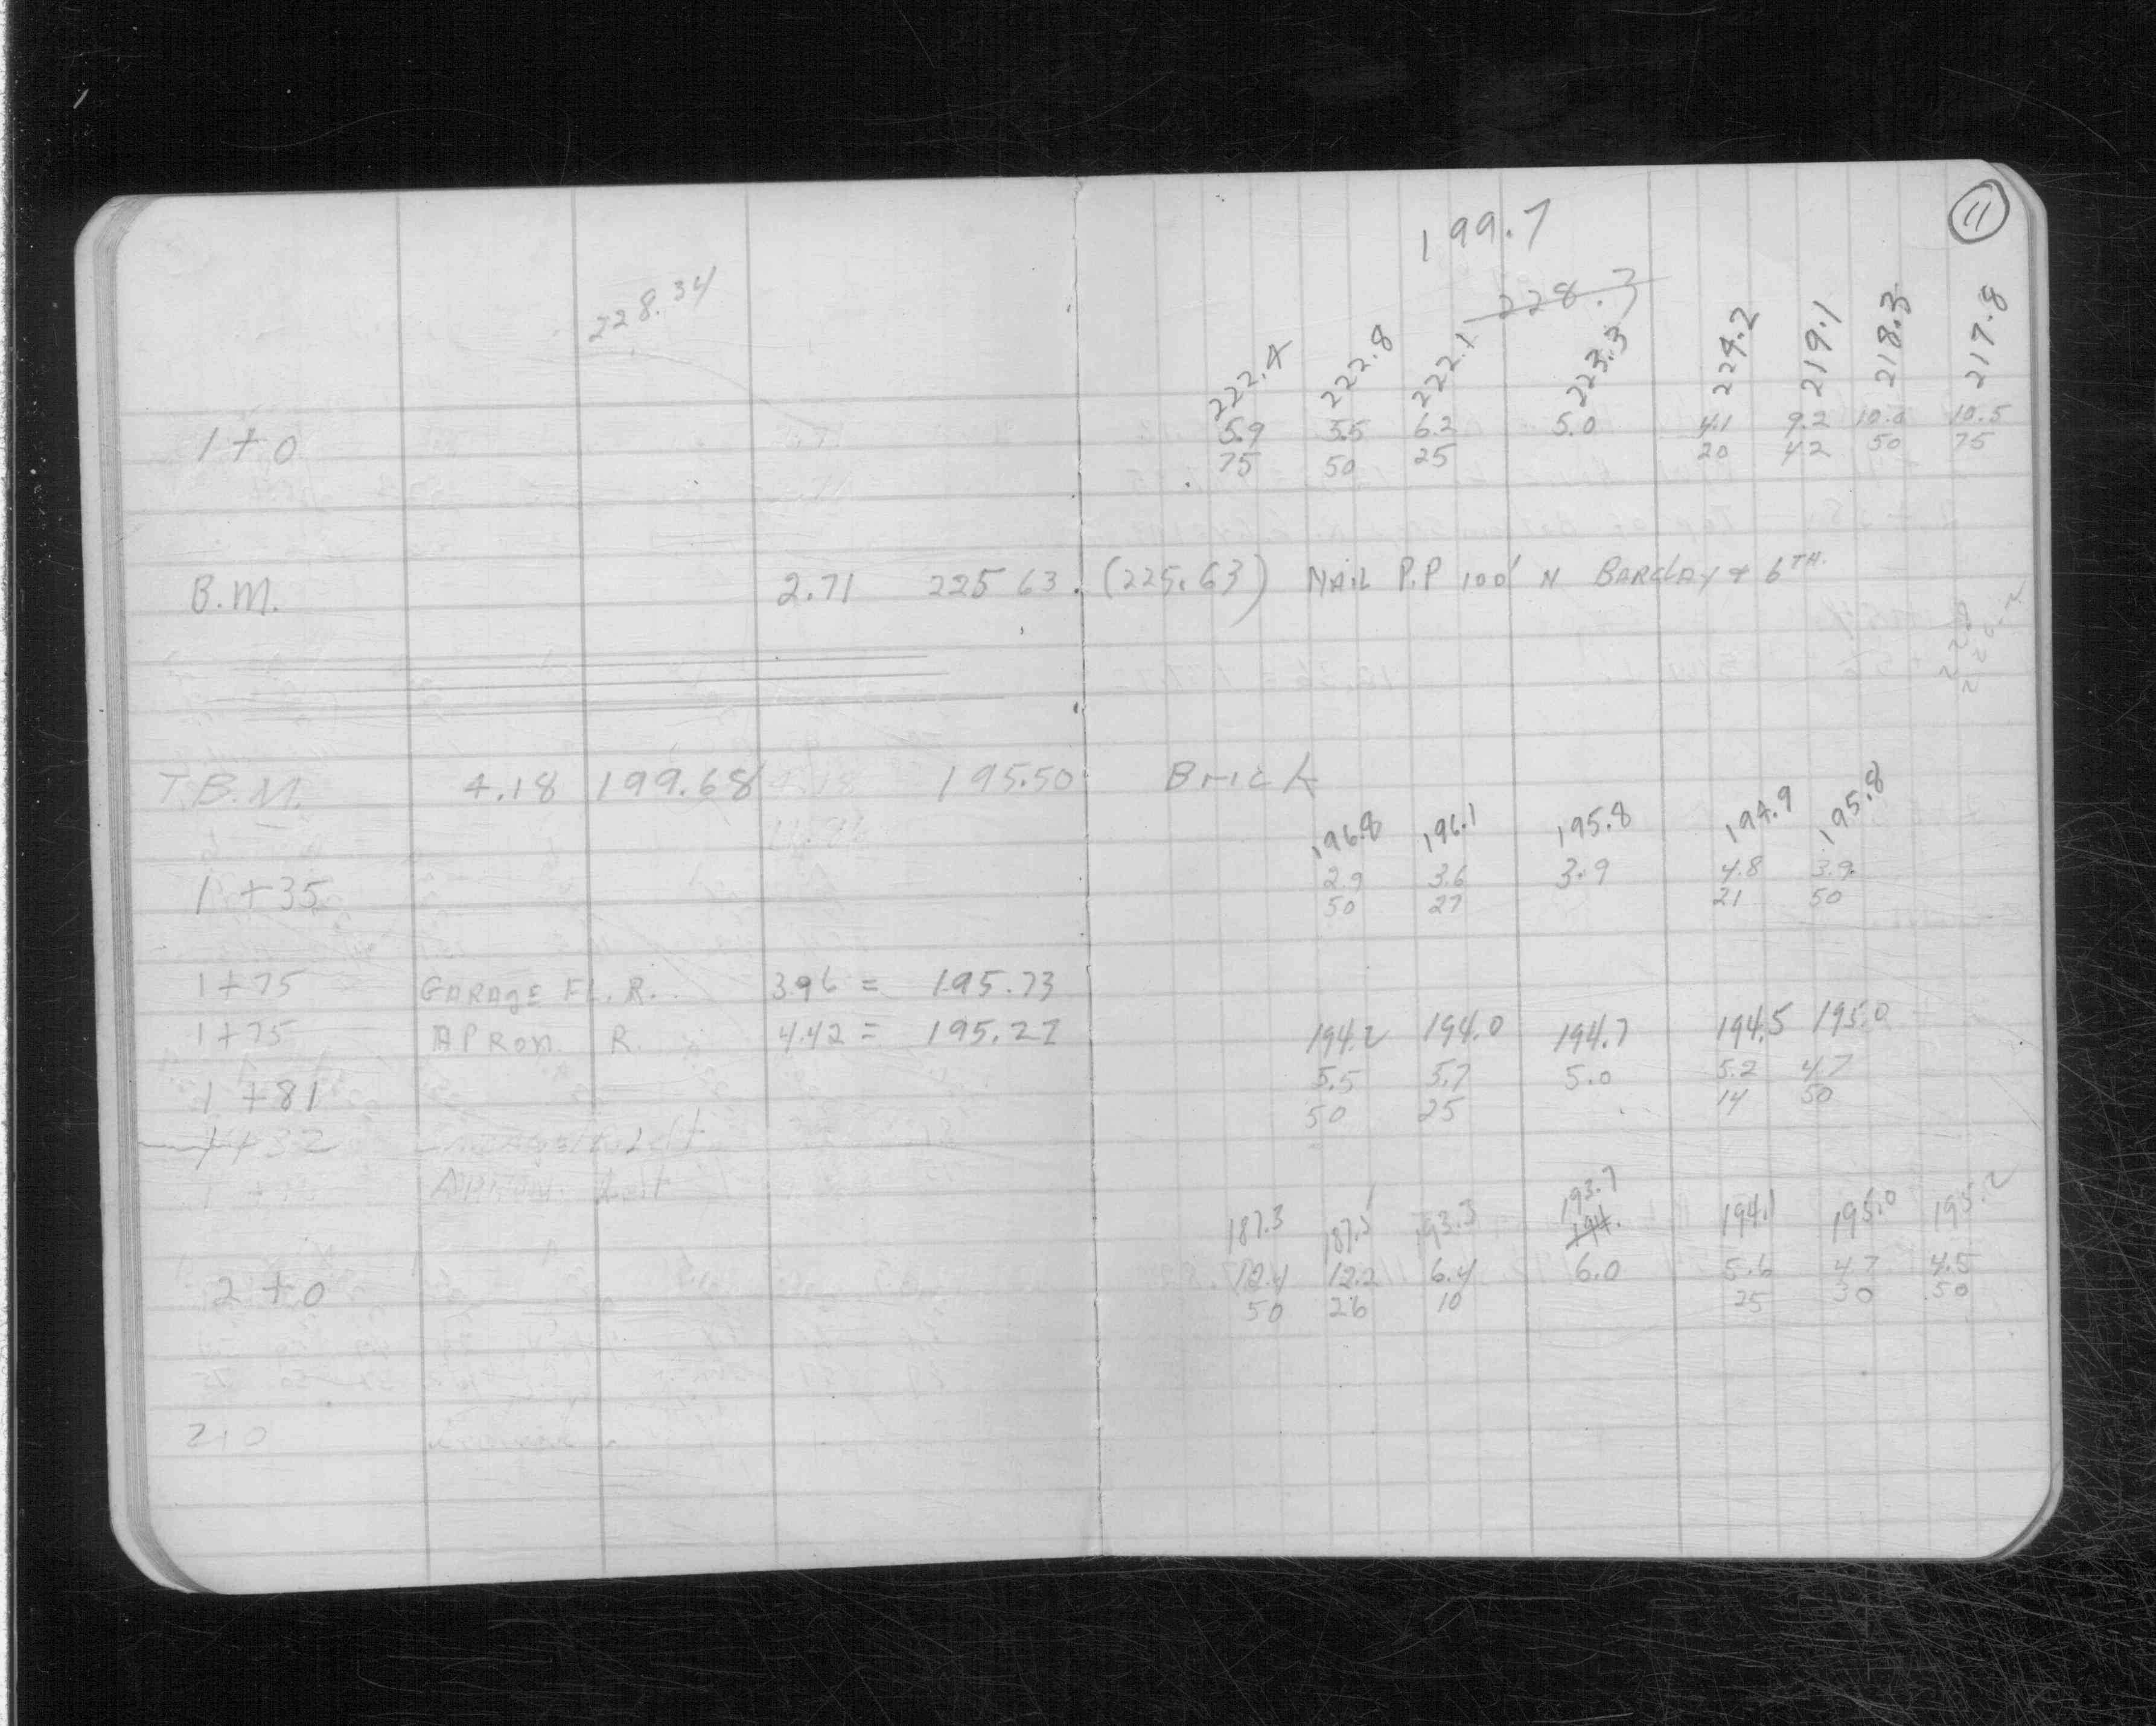 11
199.7
228.34
228.3
222.4 222.8 222.1 223.3 224.2 219.1 218.3 217.8
1+0 5.9 5.5 6.2 5.0 4.1 9.2 10.0 10.5
75 50 25 20 42 50 75
B.M. 2.71 225 63. (225.63) NAIL P.P 100' N BARCLAY & 6TH.
T.B.M. 4.18 199.68 4.18 195.50 Brick
196.8 196.1 195.8 194.9 195.8
1+35 2.9 3.6 3.9 4.8 3.9
50 27 21 50
1+75 GARAGE FL. R. 3.96 = 195.73
1+75 APRON R. 4.42 = 195.27
194.2 194.0 194.7 194.5 195.0
1+81 5.5 5.7 5.0 5.2 4.7
50 25 14 50
1+32
Apron left
193.7
187.3 187.5 193.3 194. 194.1 195.0 195.2
2+0 12.4 12.2 6.4 6.0 5.6 4.7 4.5
50 26 10 25 30 50
2+0